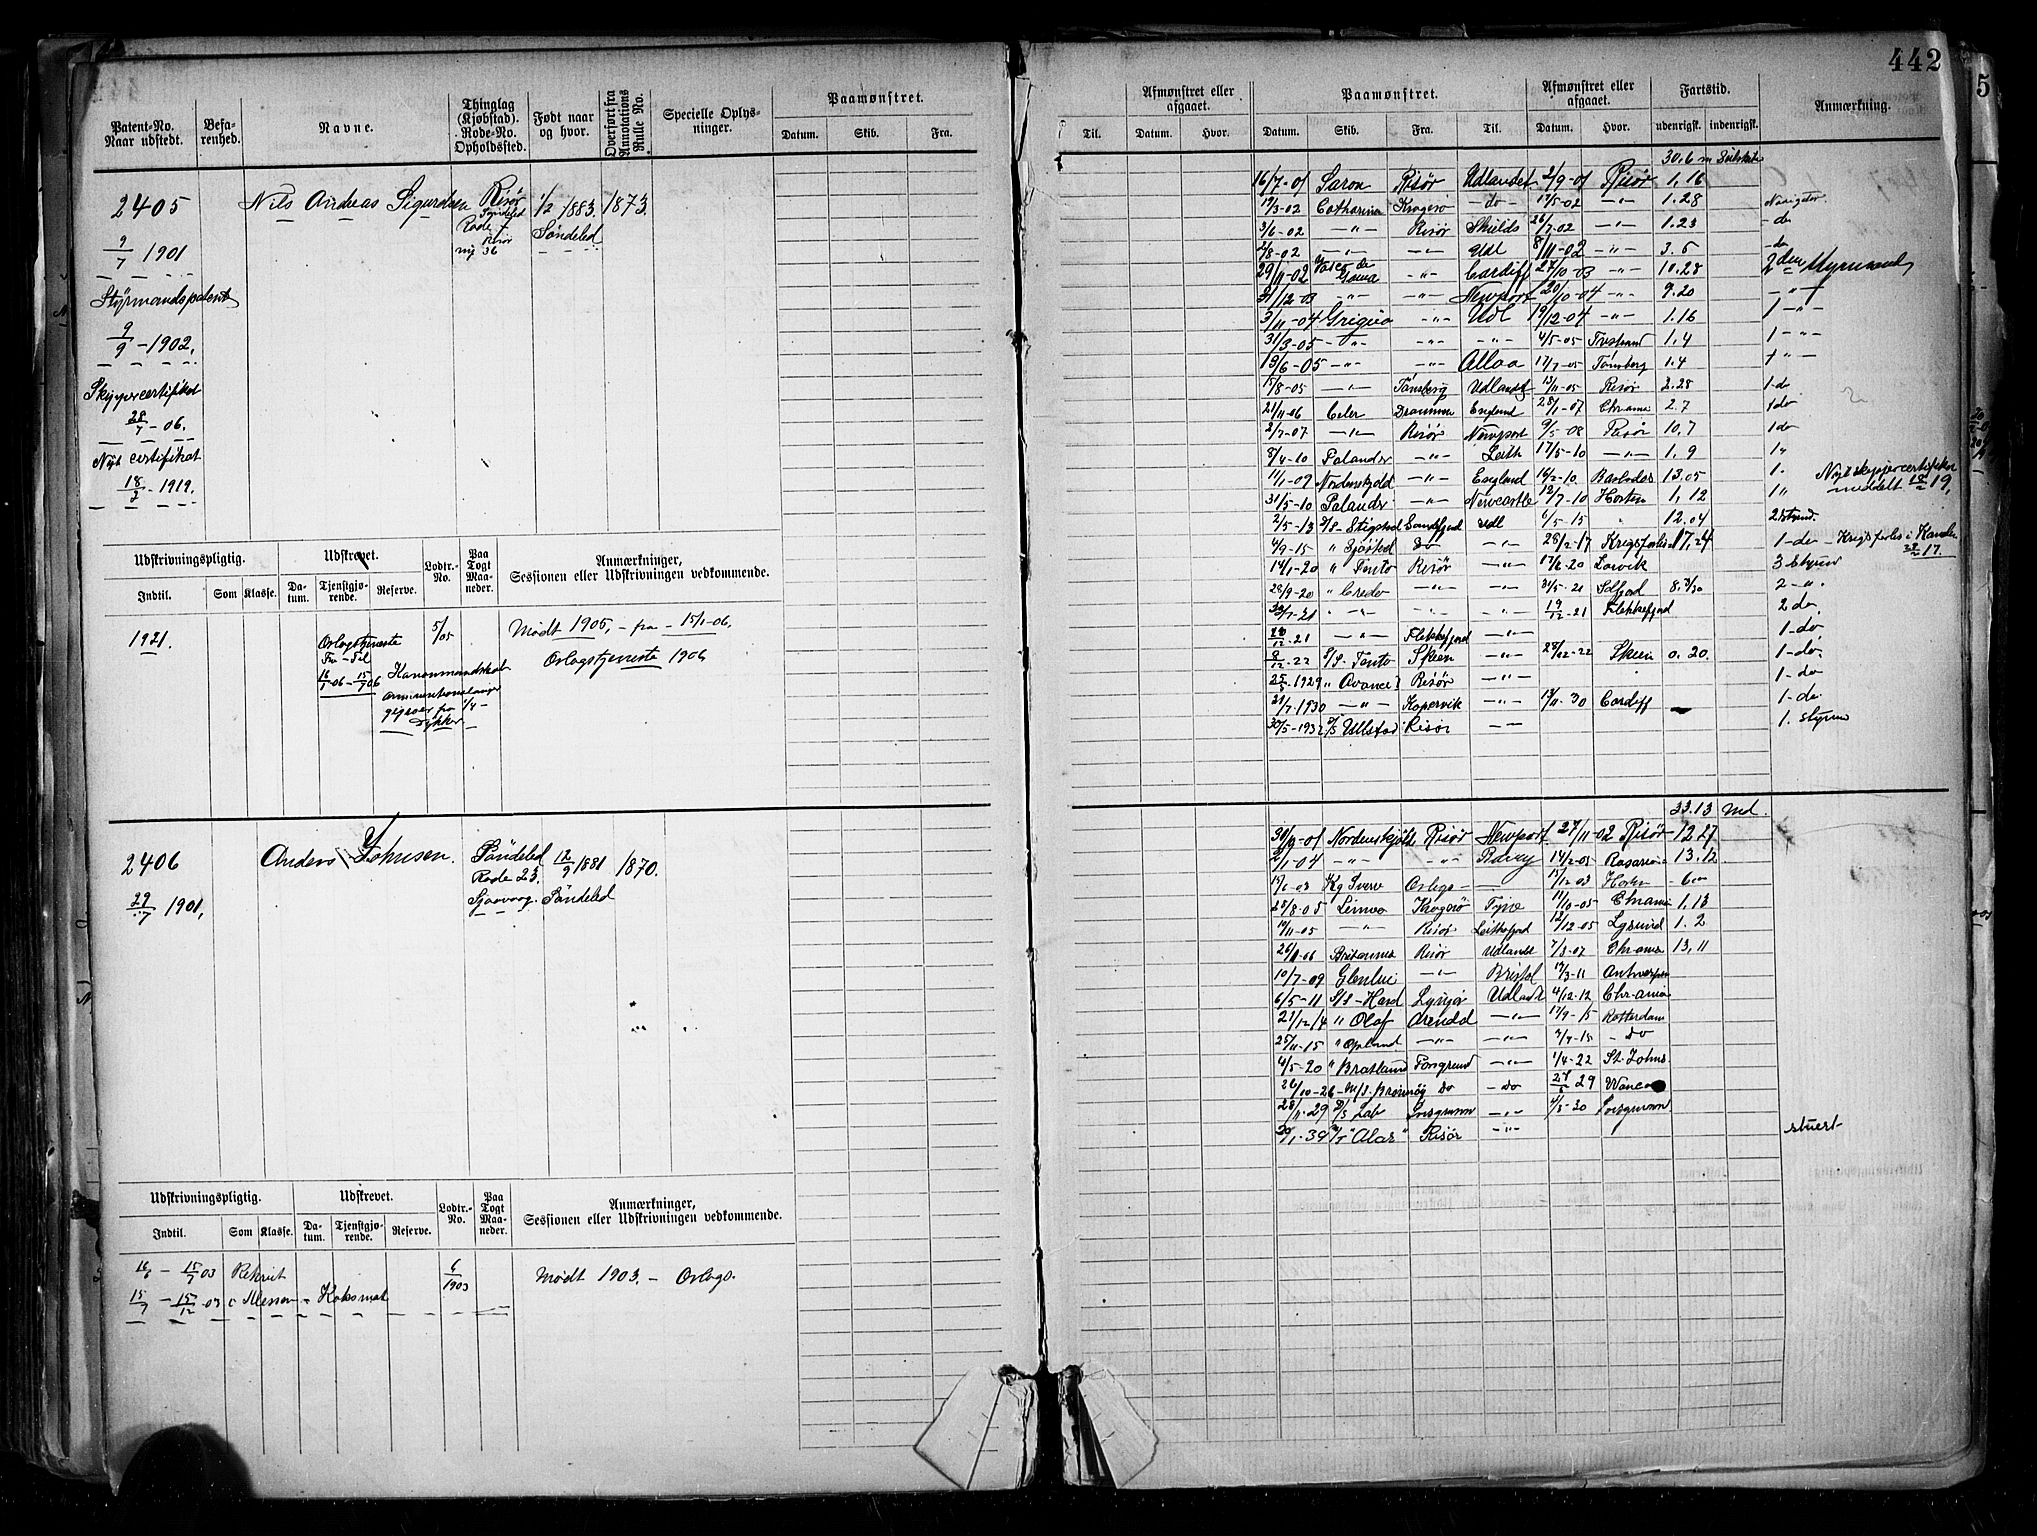 442
Patent-No. Naar udstedt.
Befarenhed.
Navne.
Thinglag (Kjøbstad). Rode-No. Opholdssted.
Født naar og hvor.
Overført fra Annotations Rulle No.
Specielle Oplysninger.
Paamønstret.
Datum. Skib. Fra.
2405
9/7 1901
Styrmandspatent
9/9 - 1902.
Skippercertifikat
28/7 - 06.
Nyt certifikat
18/2 - 1919.
Nils Andreas Sigurdsen
Risør
Søndeled
Rode 7
Risør
ny 36
1/2 1883.
Søndeled
1873.
Udskrivningspligtig. Udskrevet. Lodtr.-No. Paa Togt Maaneder. Anmærkninger, Sessionen eller Udskrivningen vedkommende.
Indtil. Som Klasse. Datum. Tjenstgjørende. Reserve.
1921.
Orlogstjeneste
Fra - Til
16/1 06 - 15/7 06
Kanonmandskab
5/05
Mødt 1905, - fra - 15/1-06.
Orlogstjeneste 1906
Dykker
2406
29/7 1901,
Anders Johnsen.
Søndeled
Rode 23.
Sjaavaag.
12/9 1881
Søndeled
1870.
Udskrivningspligtig. Udskrevet. Lodtr.-No. Paa Togt Maaneder. Anmærkninger, Sessionen eller Udskrivningen vedkommende.
Indtil. Som Klasse. Datum. Tjenstgjørende. Reserve.
16/6 - 15/7 03 Rekrut
15/7 - 15/12 03 Koksmat
6/1903
Mødt 1903. - Orlogs.
Afmønstret eller afgaaet. Paamønstret. Afmønstret eller afgaaet. Fartstid. Anmærkning.
Til. Datum. Hvor. Datum. Skib. Fra. Til. Datum. Hvor. udenrigsk. indenrigsk.
30.6 m
16/7-01 Saron Risør Udlandet 2/9-01 Risør 1.16
19/3-02 Catharina Kragerø - do - 17/5-02 - " - 1.28 Navigatør
3/6-02 - " - Risør Shields 26/7-02 - " - 1.23 - do
2/8-02 - " - - " - Udl 8/11-02 - " - 3.6 - do
29/11-02 Vasco da Gama - " - Cardiff 27/10-03 - " - 10.28 2den Styrmand
31/12-03 - " - - " - Newport 20/10-04 - " - 9.20 - " -
3/11-04 Griqua - " - Udl 19/12-04 - " - 1.16 1 - " -
31/3-05 - " - - " - - " - 4/5-05 1.4 1 - " -
13/6-05 - " - - " - Alloa 17/7-05 Tønsberg 1.4 1 " -
15/8-05 - " - Tønsberg Udlandet 13/11-05 Risør 2.28 1-do
21/11-06 Celer Drammen England 28/1-07 Chrania 2.7 1 do
2/7-07 - " - Risør Newport 9/5-08 Risør 10.7 1 do
8/4-10 Palander - " - Leith 17/5-10 - " - 1.9 1 "
11/1-09 Nordenskjold - " - England 16/2-10 Barbados 13.05 1.
Nyt skippercertifikat meddelt 18/2 19,
31/5-10 Palander - " - Newcastle 12/7-10 Horten 1.12 1 "
2/5-13 S/S Stigstad Sandefjord Udl 6/5-15 12.04 2 Styrmd.
4/9-15 " Sjøstad do - " - 28/2-17 Krigsforlis 17.24 1-do - Krigsforlis i Kanalen 28/2 17.
14/1-20 " Tento Risør - " - 17/6-20 Larvik 3 Styrmd
28/9-20 " Credo - " - - " - 31/5-21 8.3/30 2 - " .
- " - - " - - " - 19/12-21 Flekkefjord 2 do.
- " - Flekkefjord - " - 1-do
8/12-22 S/S Tento Skien - " - 28/12-22 Skien 0.20. 1-do
25/5-1929 " Avance I Risør - " - 1-do
21/7-1930 - " - Kopervik - " - 13/11 30 Cardiff 1-do.
30/5-1932 D/S Ullstad Risør - " - 1. Styrmd
33.13 Md.
31/9-01 Nordenskjold Risør Newport 27/11-02 Risør 12.27
2/1-04 - " - - " - 14/2-05 Rosario 13.12
15/6-03 Kg Sverre Orlogs - 15/12 03 Horten - 6 -
28/8-05 Kragerø Tyne 11/10-05 Chrania 1.13
19/11-05 - " - Risør 12/12-05 1.2
Britannia Risør Udlandet 7/3-07 Chrania 13.11
10/7-09 Glenlui - " - Bristol 17/3-11 Antwerpen
6/5-11 S/S Hard Lyngør Udlandet 4/12-12 Chrania
21/12-14 " Olaf Arendal - " - 17/9-15 Rotterdam
25/11-15 " Opland - " - - " - - do
4/5-20 " Bratland Porsgrund - " - 1/4-22 St. Johns.
26/10-26 - M/S Brönnøy do - do 27/6 29
28/11-29 D/S Lab Porsgrunn - " - 4/3-30 Porsgrunn
20/1-39 M/T "Alar" Risør - " - stuert